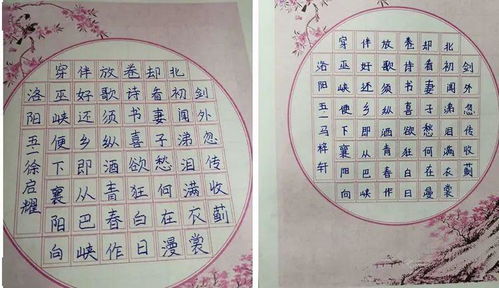 剑外忽传收蓟
北初闻涕泪满衣裳
却看妻子愁何在漫
卷诗书喜欲狂白日
放歌须纵酒青春作
伴好还乡即从巴峡
穿巫峡便下襄阳向
洛阳五一徐启耀
剑外忽传收蓟
北初闻涕泪满衣裳
却看妻子愁何在漫
卷诗书喜欲狂白日
放歌须纵酒青春作
伴好还乡即从巴峡
穿巫峡便下襄阳向
洛阳五一马梓轩